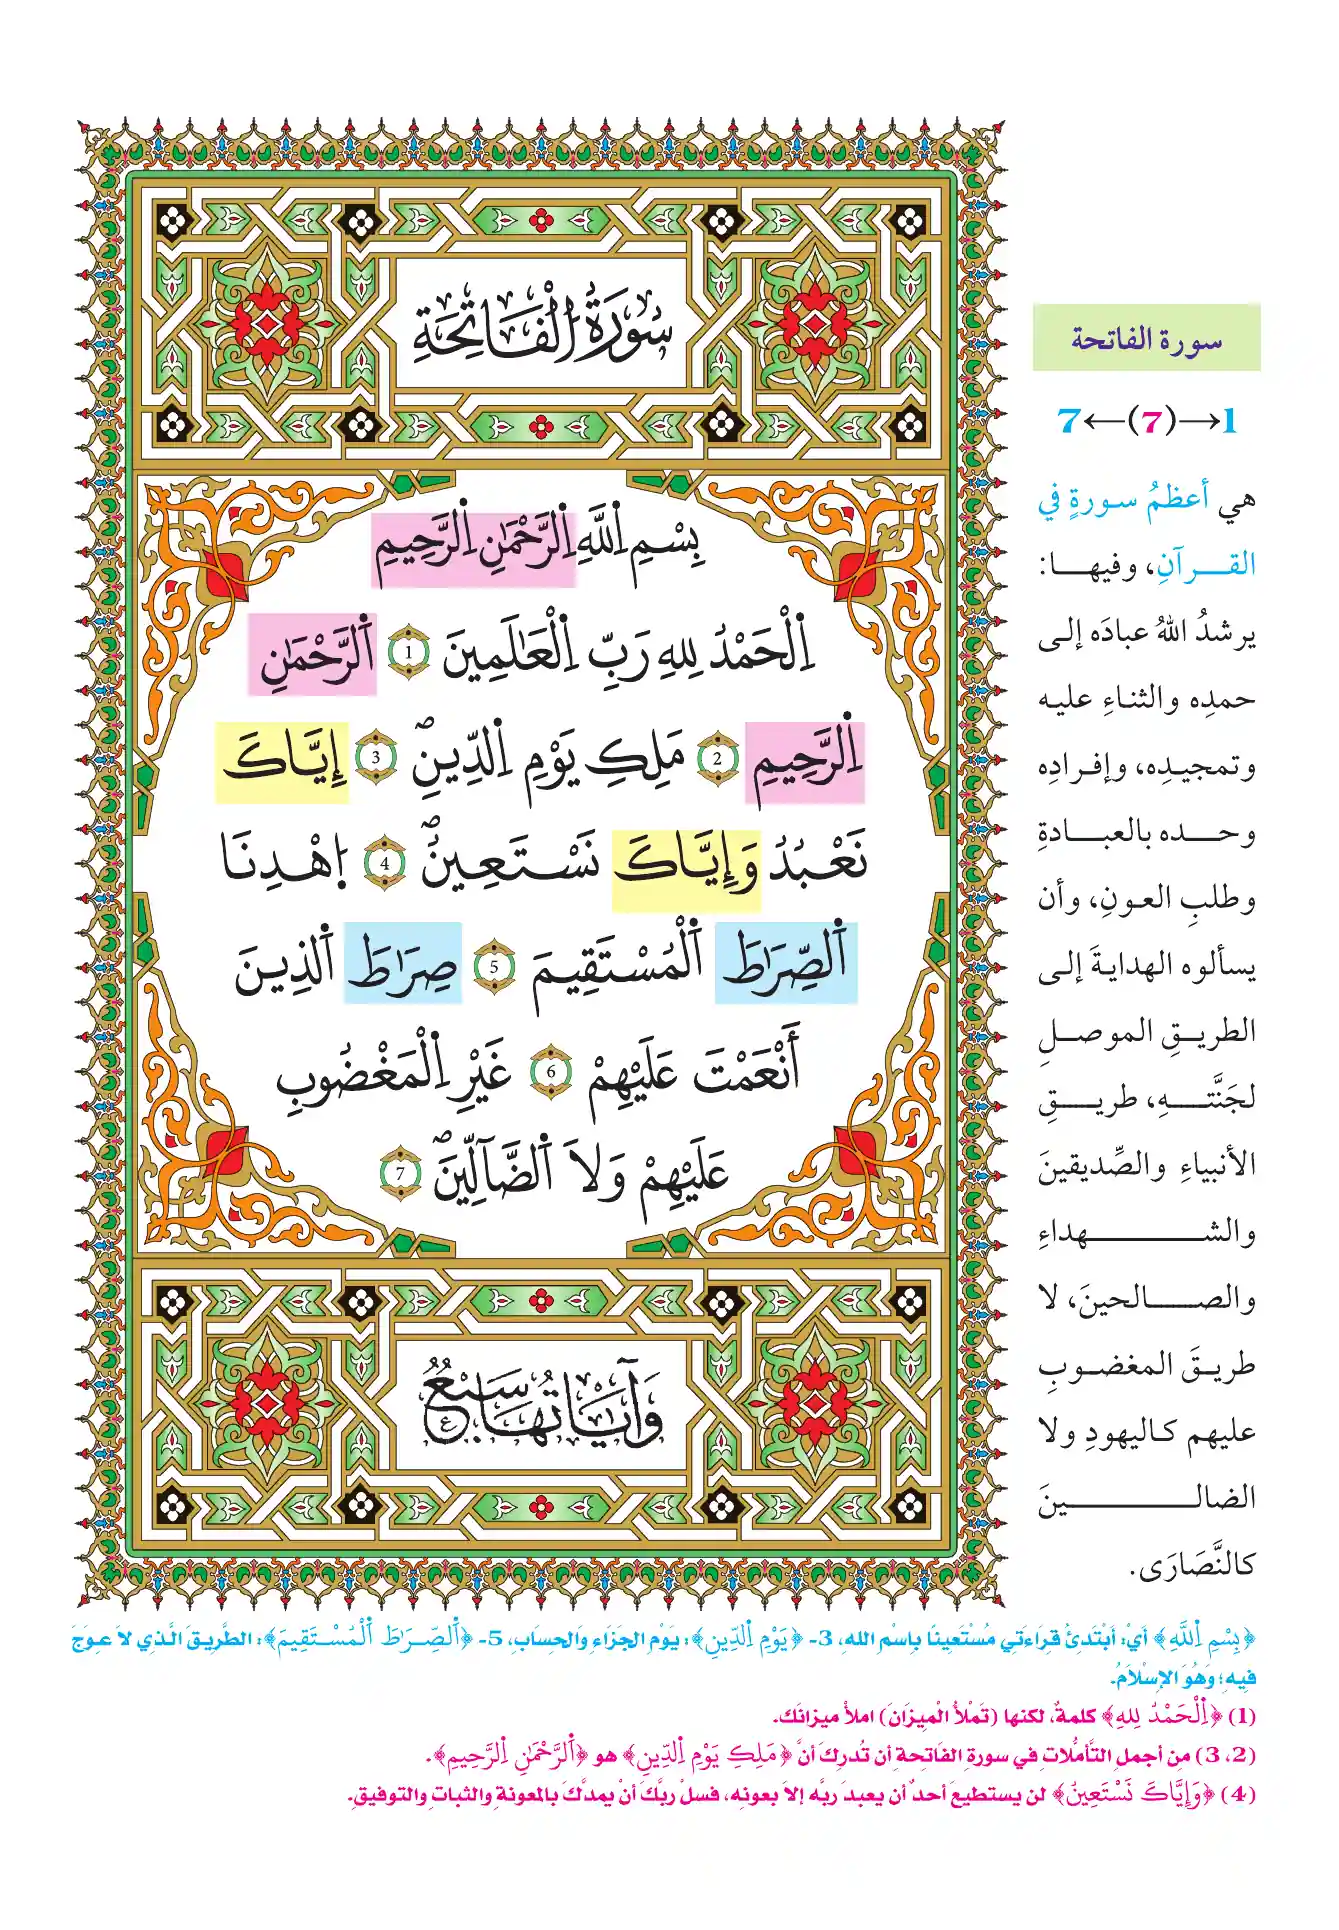 سُورَةُ الْفَاتِحَةِ
بِسْمِ اِللَّهِ اِلرَّحْمَٰنِ اِلرَّحِيمِ
اِلْحَمْدُ لِلهِ رَبِّ اِلْعَٰلَمِينَ 1 اَلرَّحْمَٰنِ
اِلرَّحِيمِ 2 مَلِكِ يَوْمِ اِلدِّينِۖ 3 إِيَّاكَ
نَعْبُدُ وَإِيَّاكَ نَسْتَعِينُۖ 4 اِهْدِنَا
اَلصِّرَٰطَ اَلْمُسْتَقِيمَ 5 صِرَٰطَ اَلذِينَ
أَنْعَمْتَ عَلَيْهِمْ 6 غَيْرِ اِلْمَغْضُوبِ
عَلَيْهِمْ وَلَا اَلضَّآلِّينَۖ 7
وَآيَاتُهَا سَبْعٌ
سورة الفاتحة
1→(7)←7
هي أعظمُ سورةٍ في
القرآنِ، وفيها:
يرشدُ اللهُ عبادَه إلى
حمدِه والثناءِ عليه
وتمجيدِه، وإفرادِه
وحده بالعبادةِ
وطلبِ العونِ، وأن
يسألوه الهدايةَ إلى
الطريقِ الموصلِ
لجَنَّتهِ، طريقِ
الأنبياءِ والصِّديقينَ
والشهداءِ
والصالحينَ، لا
طريقَ المغضوبِ
عليهم كاليهودِ ولا
الضالينَ
كالنَّصَارَى.
﴿بِسْمِ اِللَّهِ﴾ أيْ: أبْتَدِئُ قِرَاءَتِي مُسْتَعِينًا بِاسْمِ اللهِ، 3- ﴿يَوْمِ اِلدِّينِ﴾: يَوْمِ الجَزَاءِ وَالحِسَابِ، 5- ﴿اَلصِّرَٰطَ اَلْمُسْتَقِيمَ﴾: الطَّرِيقَ الَّذِي لَا عِوَجَ
فِيهِ؛ وَهُوَ الإِسْلَامُ.
(1) ﴿اِلْحَمْدُ لِلهِ﴾ كلمةٌ، لكنها (تَمْلَأُ الْمِيزَانَ) املأْ ميزانَك.
(2، 3) من أجملِ التَّأمُّلات في سورة الفَاتحة أن تُدرِكَ أنَّ ﴿مَلِكِ يَوْمِ اِلدِّينِ﴾ هو ﴿اَلرَّحْمَٰنِ اِلرَّحِيمِ﴾.
(4) ﴿وَإِيَّاكَ نَسْتَعِينُ﴾ لن يستطيعَ أحدٌ أن يعبدَ ربَّه إلا بعونِه، فسلْ ربَّكَ أنْ يمدَّكَ بالمعونةِ والثباتِ والتوفيقِ.